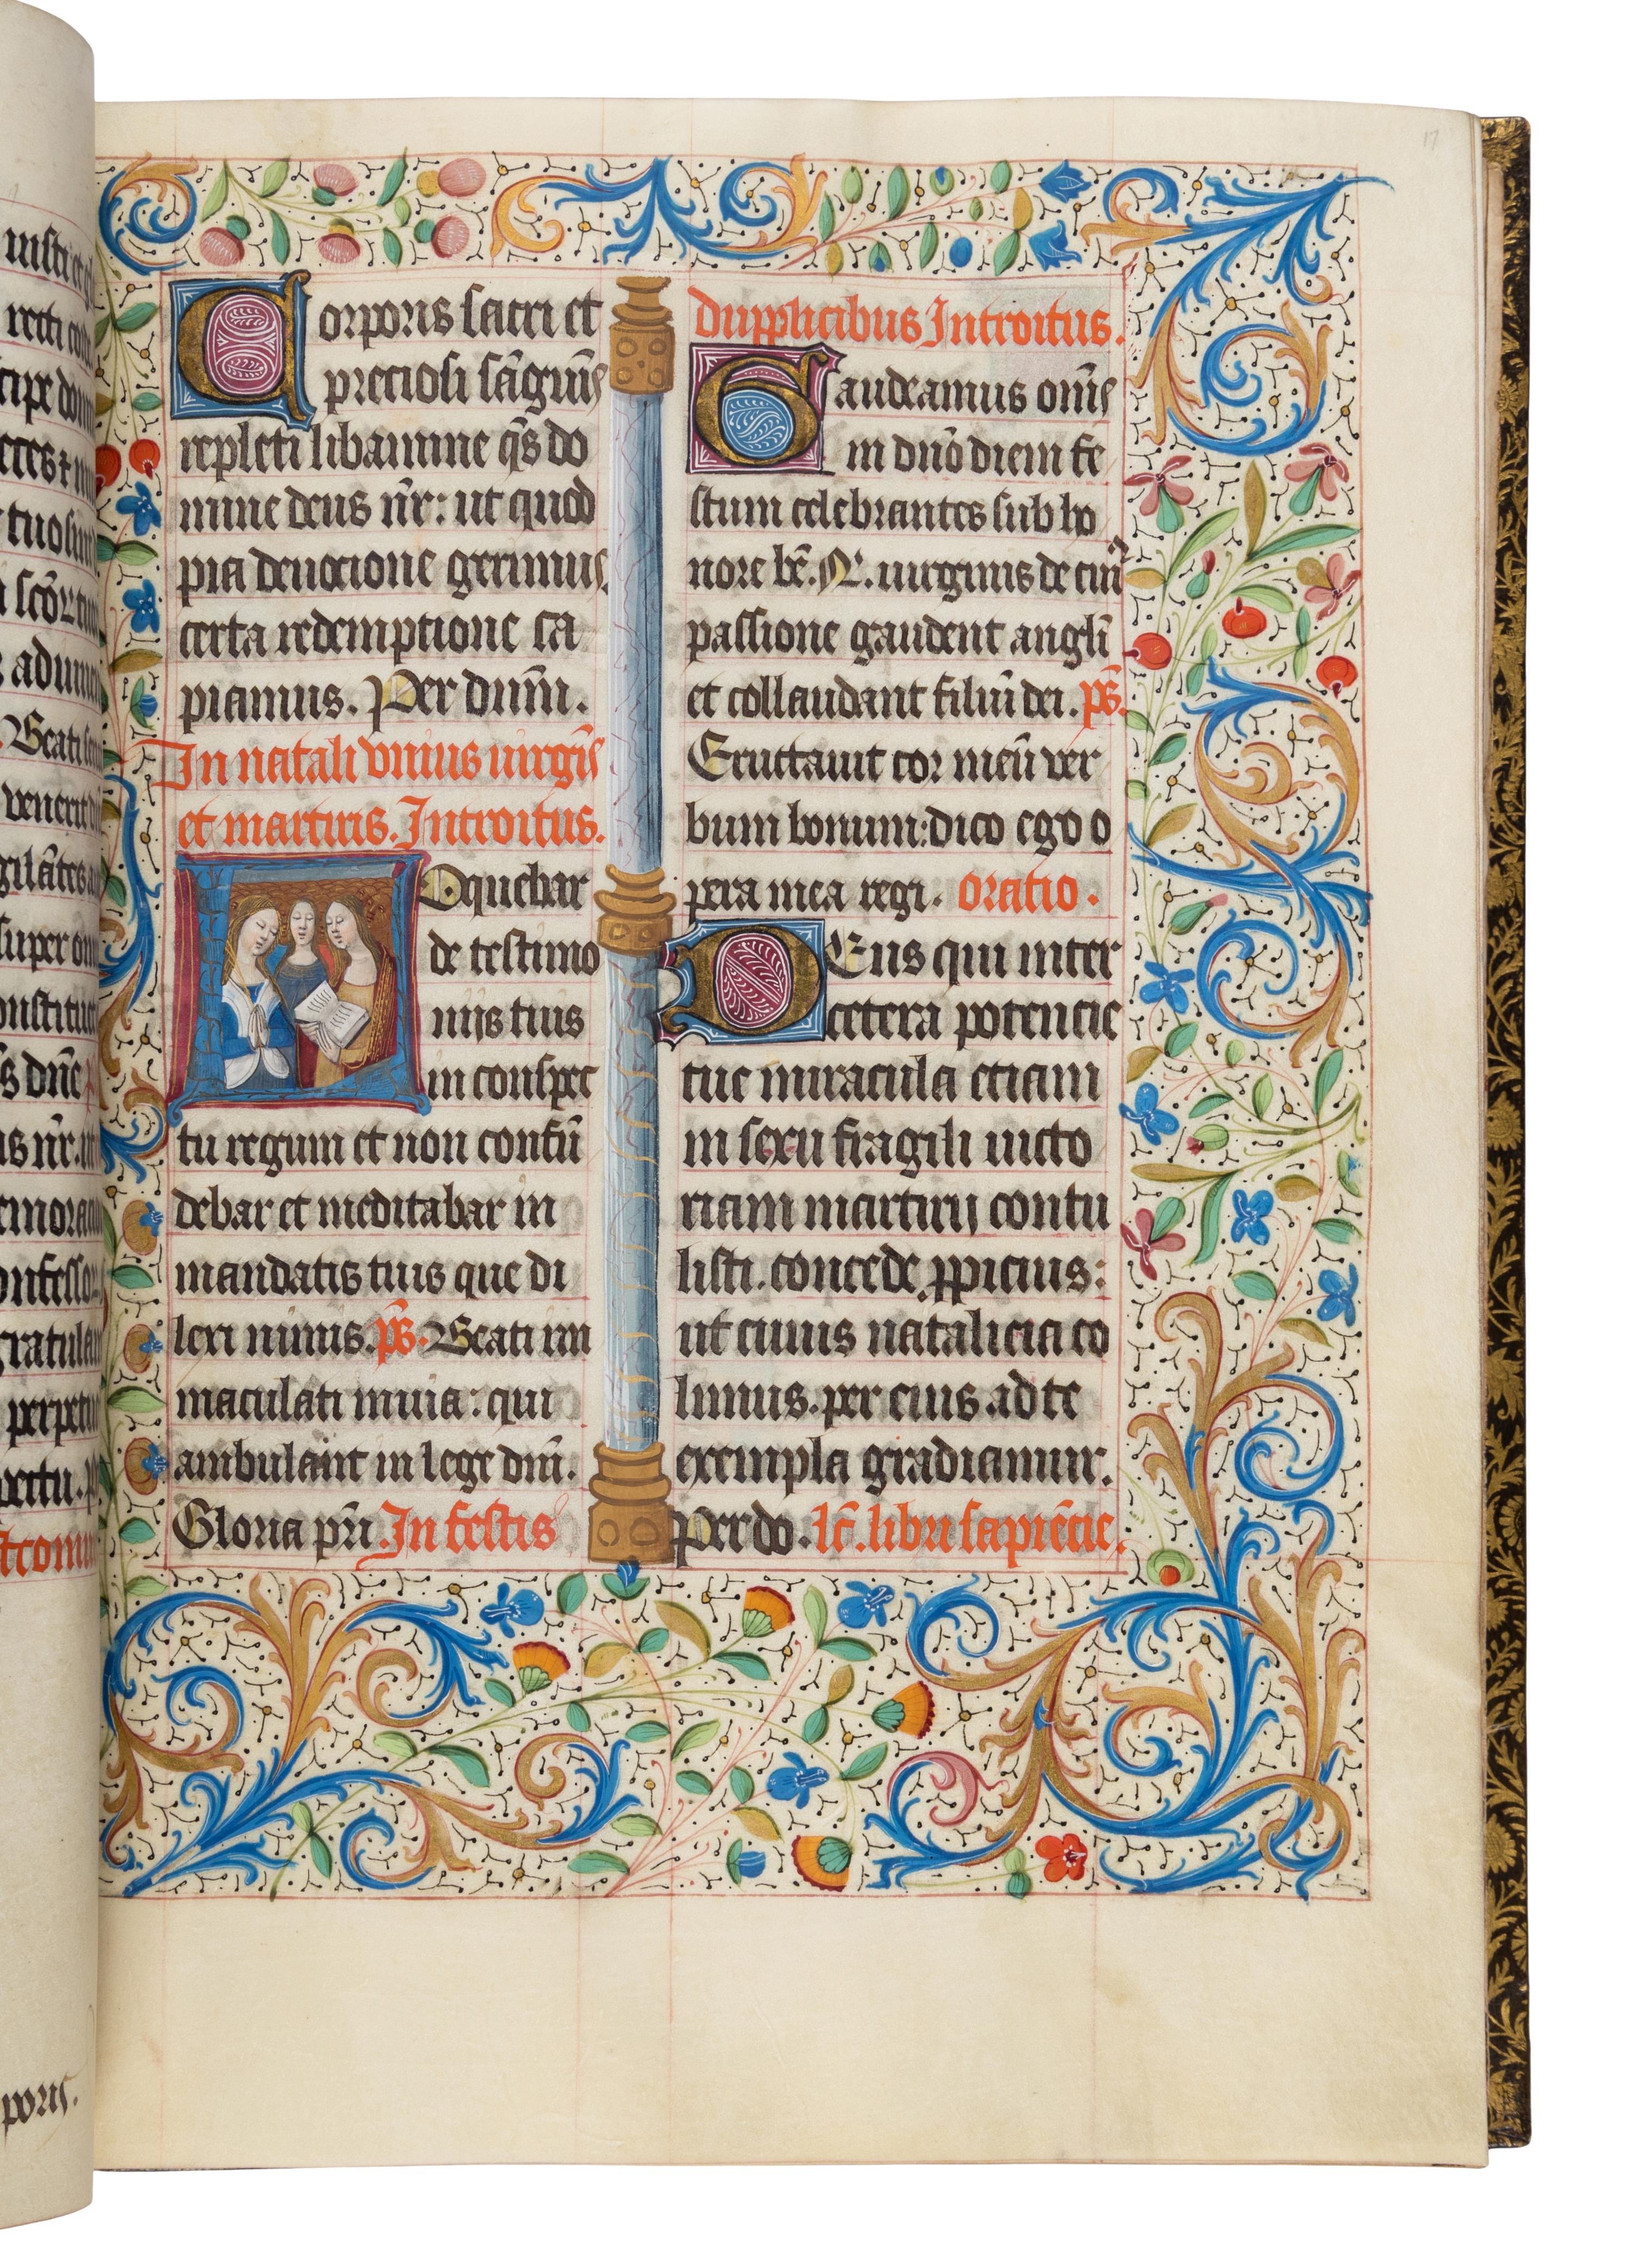 iusti et
recti co
cipe do
tuo
adiu
Beati
venerit
gilātes
super
s dn̄e
is nr̄. ut
perpetu
petu. P
poris.
17
Corporis sacri et
preciosi sāguīs
repleti libamine qs̄ do
mine deus nr̄: ut quod
pia deuocione gerimus
certa redemptione ca
piamus. Per dn̄m.
In natali vnius uirgīs
et martiris. Introitus.
Loquebar
de testimo
nijs tuis
in conspec
tu regum et non confū
debar et meditabar in
mandatis tuis que di
lexi nimis. ps̄. Beati im
maculati in uia: qui
ambulant in lege dn̄i.
Gloria pr̄i. In festis
dupplicibus Introitus.
Gaudeamus om̄s
in dn̄o diem fe
stum celebrantes sub ho
nore be̅. N. uirginis de cui9
passione gaudent angl̄i
et collaudant filiū dei. ps̄.
Eructauit cor meū ver
bum bonum: dico ego o
pera mea regi. oratio.
DEus qui inter
cetera potencie
tue miracula etiam
in sexu fragili uicto
riam martirij contu
listi. concede ꝓpicius:
ut cuius natalicia co
limus. per eius ad te
exempla gradiamur.
Per do. lc̄. libri sapiēcie.